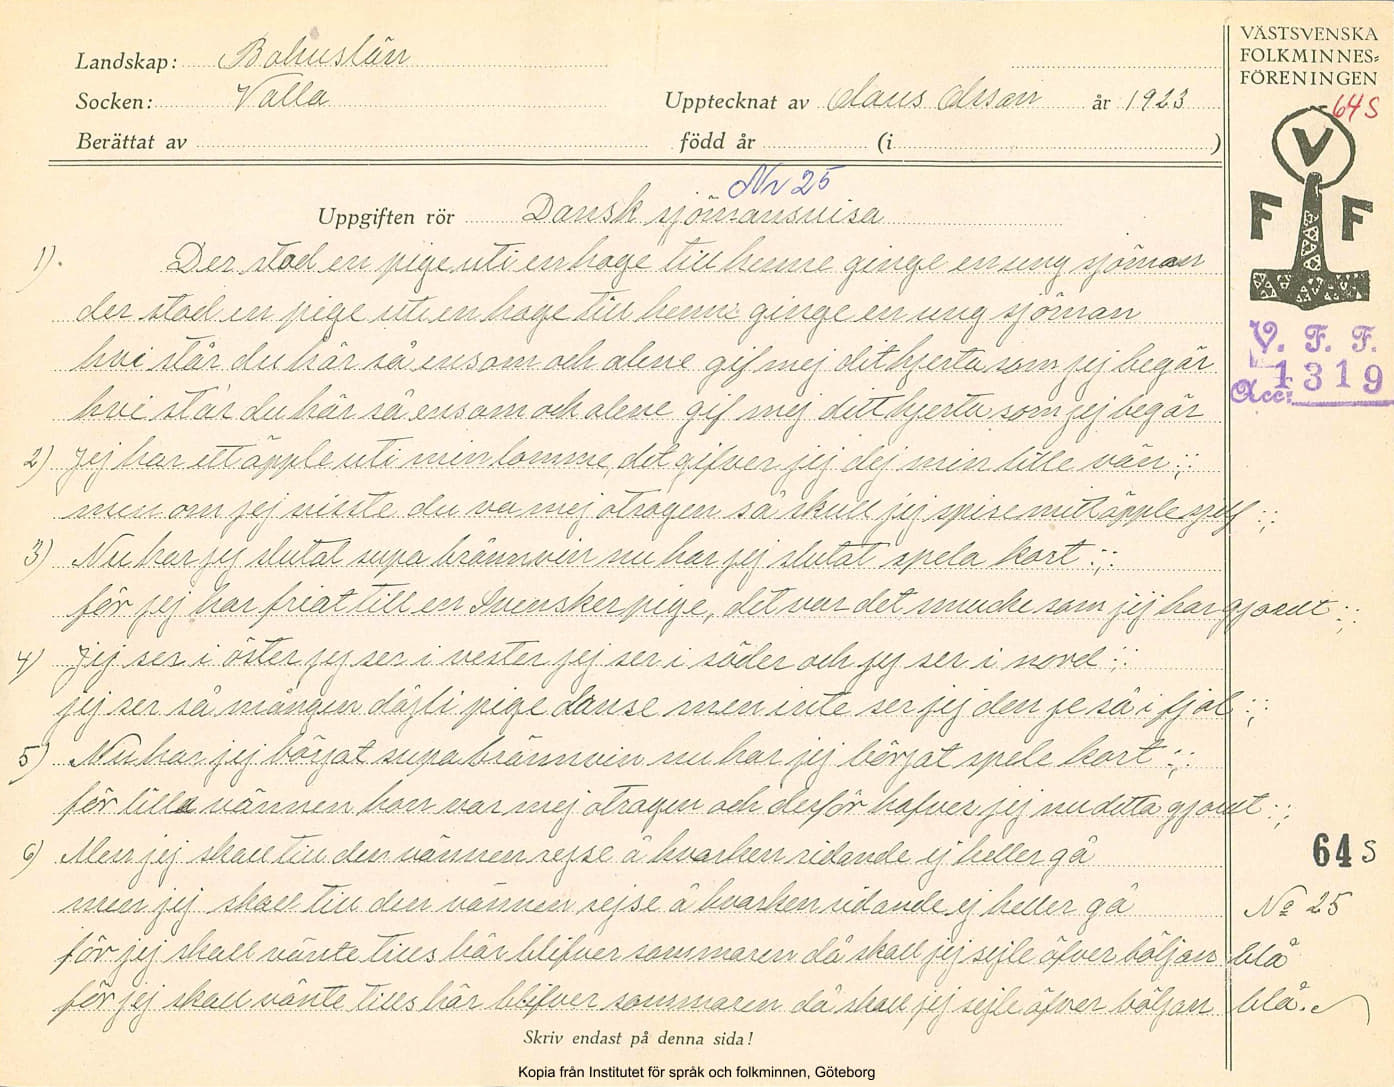 Landskap: Bohuslän
Socken: Valla
Upptecknat av Claus Olsson år 1923
Berättat av född år (i )
VÄSTSVENSKA
FOLKMINNES-
FÖRENINGEN
64 S
V
F F
V. F. F.
Acc: 1319
Nr 25
Uppgiften rör Dansk sjömansvisa
1). Der stod en pige uti en hage till henne ginge en ung sjöman
der stod en pige uti en hage till henne ginge en ung sjöman
hvi står du här så ensom och alene gif mej dit hjerta som jej begär
hvi står du här så ensom och alene gif mej ditt hjerta som jej begär
2) Jej har ett äpple uti min lomme, det gifver jej dej min lille vän :;:
men om jej visste du va mej otrogen så skull jej spise mitt äpple sjelf :;:
3) Nu har jej slutat supa brännvin nu har jej slutat spela kort :;:
för jej har friat till en Svensker pige, det var det som jej har gjordt :;:
4) Jej ser i öster jej ser i vester jej ser i söder och jej ser i nord :;:
jej ser så mången däjli pige danse men inte ser jej den je så i fjol :;:
5) Nu har jej börjat supa brännvin nu har jej börjat spele kort :;:
för lilla vännen hon var mej otrogen och derför hafver jej nu detta gjordt :;:
6) Men jej skall till den vännen rejse å hvarken ridande ej heller gå
men jej skall till den vännen rejse å hvarken ridande ej heller gå
för jej skall vänte tills här blifver sommaren då skall jej sejle öfver böljan blå
för jej skall vänte tills här blifver sommaren då skall jej sejle öfver böljan blå.
64 S
No 25
Skriv endast på denna sida!
Kopia från Institutet för språk och folkminnen, Göteborg